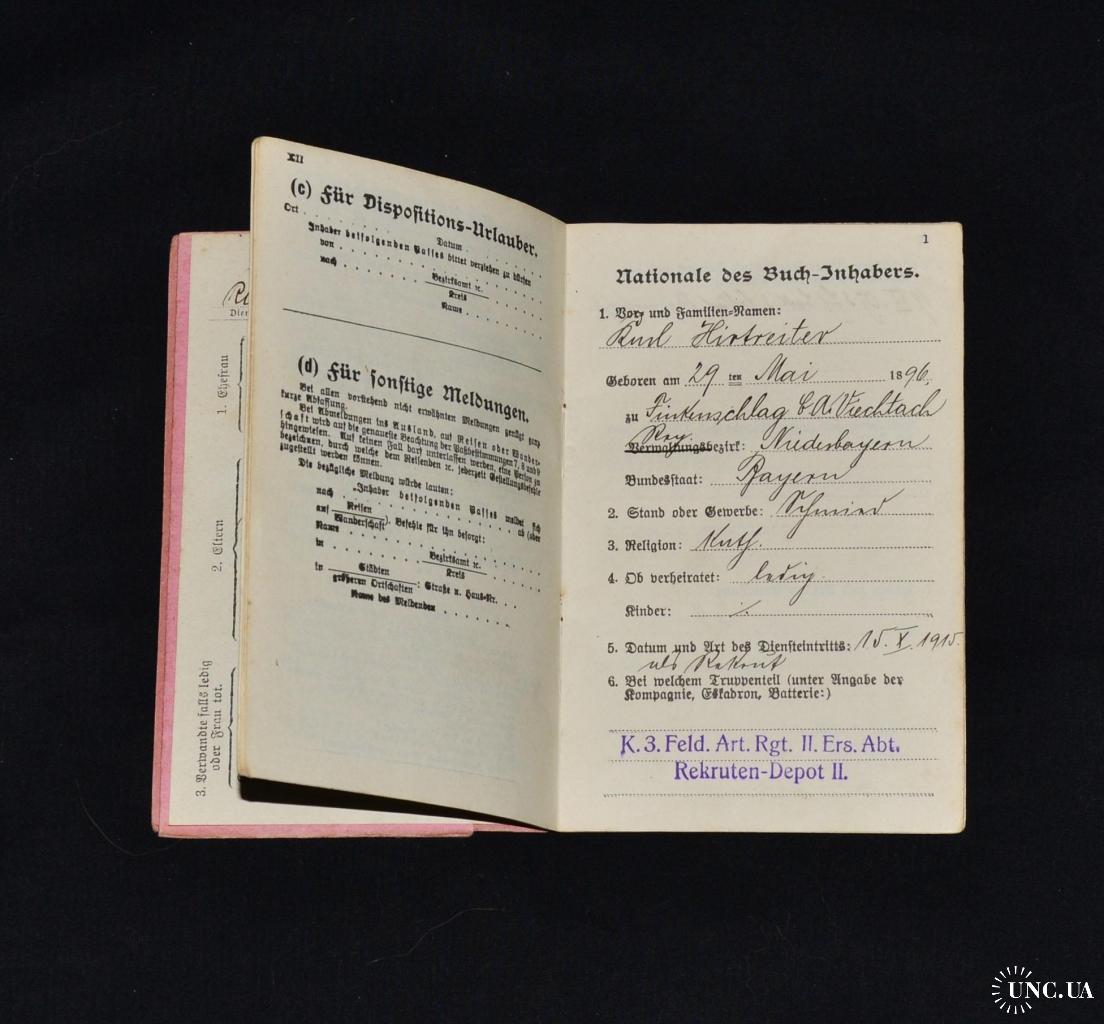 XII
(c) Für Dispositions-Urlauber.
Ort . . . . . Datum . . . . .
Inhaber beifolgenden Passes bittet verziehen zu dürfen
von . . . . .
nach . . . . . Bezirksamt ꝛc.
Kreis
Name . . . . .
(d) Für sonstige Meldungen.
Bei allen vorstehend nicht erwähnten Meldungen genügt ganz
kurze Abfassung.
Bei Abmeldungen ins Ausland, auf Reisen oder Wander-
schaft wird auf die genaueste Beachtung der Paßbestimmungen 7, 8 und 9
hingewiesen. Auf keinen Fall darf unterlassen werden, eine Person zu
bezeichnen, durch welche dem Reisenden ꝛc. jederzeit Gestellungsbefehle
zugestellt werden können.
Die bezügliche Meldung würde lauten:
„Inhaber beifolgenden Passes meldet sich
nach . . . . . ab (oder
auf Reisen
Wanderschaft). Befehle für ihn besorgt:
Name . . . . .
in . . . . . Bezirksamt ꝛc.
Kreis
in Städten
größeren Ortschaften: Straße u. Haus-Nr. . . .
Name des Meldenden . . . . .
1. Ehefrau
2. Eltern
3. Verwandte falls ledig
oder Frau tot.
1
Nationale des Buch-Inhabers.
1. Vor- und Familien-Namen:
Karl Hirtreiter
Geboren am 29 ten Mai 1896.
zu Finkenschlag B.A. Viechtach
Reg.
Verwaltungsbezirk: Niederbayern
Bundesstaat: Bayern
2. Stand oder Gewerbe: Schmied
3. Religion: Kath.
4. Ob verheiratet: ledig.
Kinder: ./.
5. Datum und Art des Diensteintritts: 15. X. 1915.
als Rekrut
6. Bei welchem Truppenteil (unter Angabe der
Kompagnie, Eskadron, Batterie:)
K. 3. Feld. Art. Rgt. II. Ers. Abt.
Rekruten-Depot II.
UNC.UA